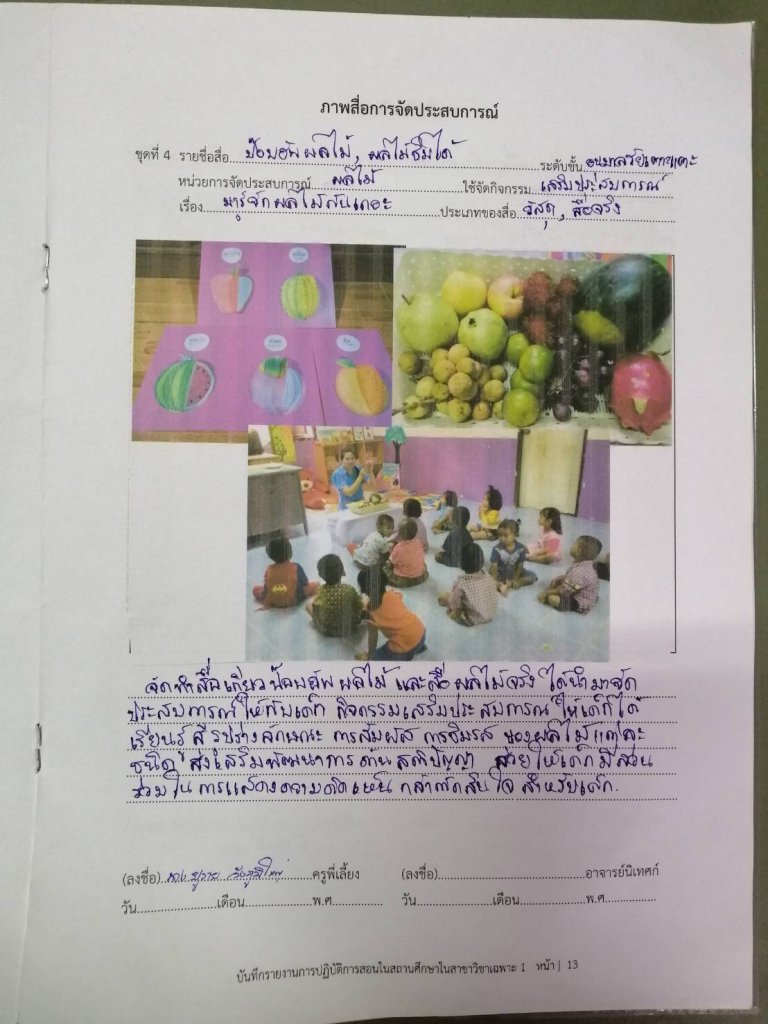 ภาพสื่อการจัดประสบการณ์
ชุดที่ 4 รายชื่อสื่อ ป๊อบอัพผลไม้, ผลไม้ชิมได้ ระดับชั้น อนุบาลวัยเตาะแตะ
หน่วยการจัดประสบการณ์ ผลไม้ ใช้จัดกิจกรรม เสริมประสบการณ์
เรื่อง มารู้จักผลไม้กันเถอะ ประเภทของสื่อ วัสดุ, สื่อจริง
จัดทำสื่อเกี่ยวป๊อบอัพผลไม้ และสื่อผลไม้จริง ได้นำมาจัด
ประสบการณ์ให้กับเด็ก กิจกรรมเสริมประสบการณ์ ให้เด็กได้
เรียนรู้ สี รูปร่างลักษณะ การสัมผัส การชิมรส ของผลไม้แต่ละ
ชนิด ส่งเสริมพัฒนาการด้านสติปัญญา ช่วยให้เด็กมีส่วน
ร่วมในการแสดงความคิดเห็น กล้าตัดสินใจ สำหรับเด็ก.
(ลงชื่อ) ครูพี่เลี้ยง (ลงชื่อ) อาจารย์นิเทศก์
วัน เดือน พ.ศ. วัน เดือน พ.ศ.
บันทึกรายงานการปฏิบัติการสอนในสถานศึกษาในสาขาวิชาเฉพาะ 1 หน้า | 13